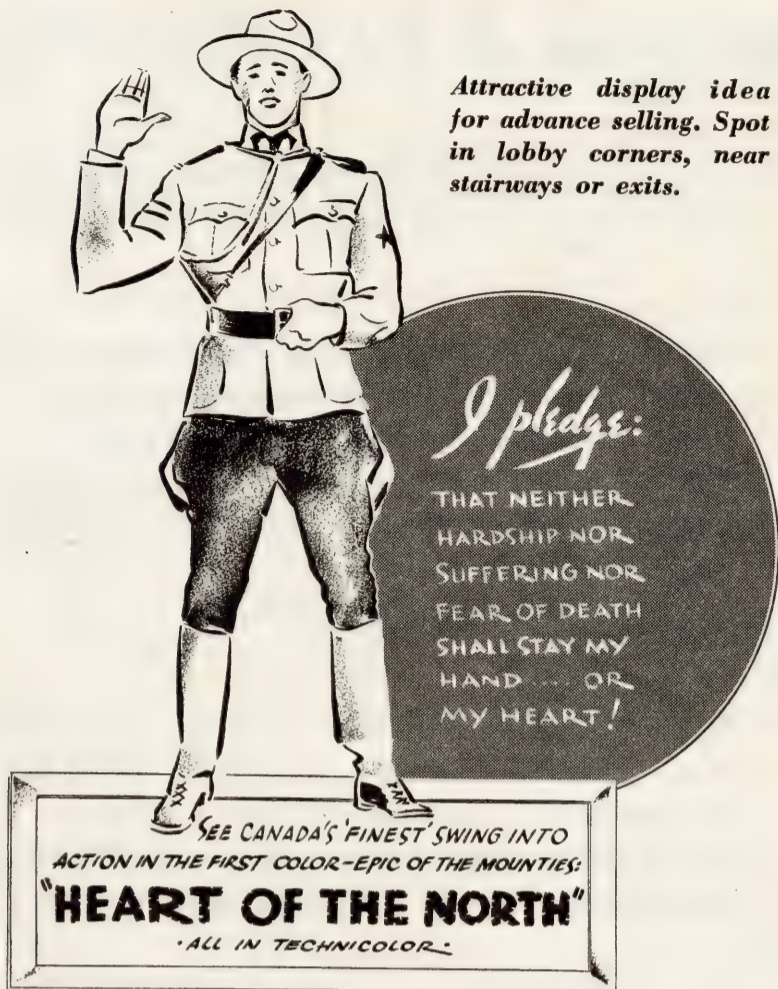 Attractive display idea
for advance selling. Spot
in lobby corners, near
stairways or exits.
I pledge:
THAT NEITHER
HARDSHIP NOR
SUFFERING NOR
FEAR OF DEATH
SHALL STAY MY
HAND .... OR
MY HEART!
SEE CANADA'S 'FINEST' SWING INTO
ACTION IN THE FIRST COLOR-EPIC OF THE MOUNTIES:
"HEART OF THE NORTH"
· ALL IN TECHNICOLOR ·